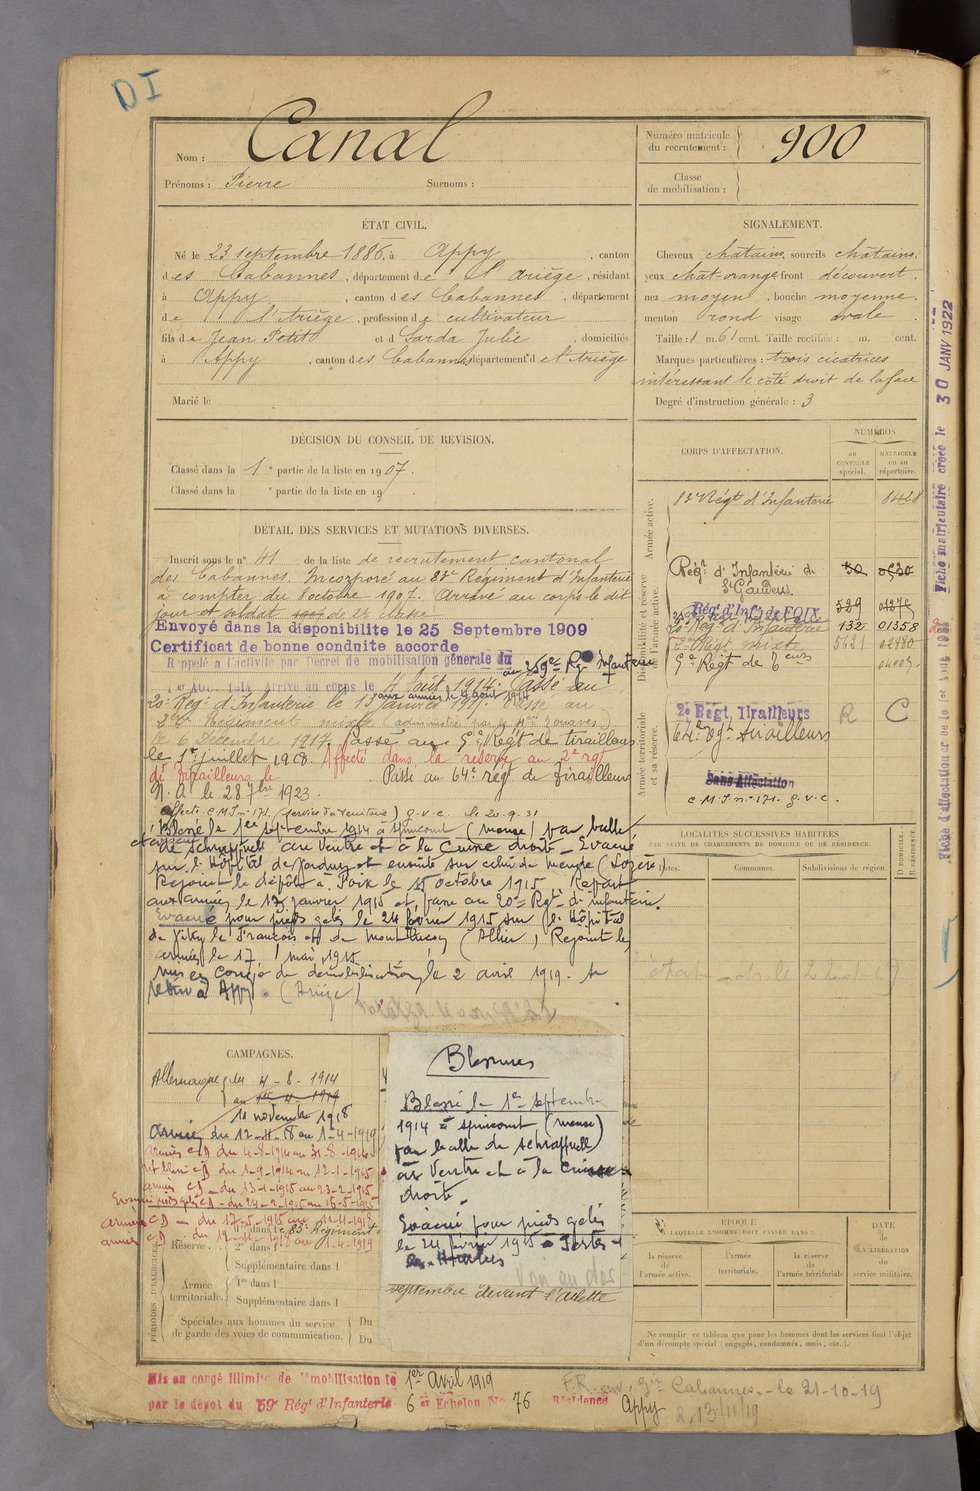 DI
Nom : Canal
Prénoms : Pierre Surnoms :
Numéro matricule du recrutement : 900
Classe de mobilisation :
ÉTAT CIVIL.
Né le 23 septembre 1886, à Appy, canton
des Cabannes, département de l'Ariège, résidant
à Appy, canton des Cabannes, département
de l'Ariège, profession de cultivateur
fils de Jean Petit et d Sarda Julie, domiciliés
à Appy, canton des Cabannes département d el'Ariège
Marié le
SIGNALEMENT.
Cheveux chatains, sourcils châtains.
yeux chat-orange, front découvert.
nez moyen, bouche moyenne.
menton rond visage ovale.
Taille : 1 m. 61 cent. Taille rectifiée : m. cent.
Marques particulières : trois cicatrices
intéressant le côté droit de la face
Degré d'instruction générale : 3
DÉCISION DU CONSEIL DE REVISION.
Classé dans la 1e partie de la liste en 1907.
Classé dans la e partie de la liste en 19
DÉTAIL DES SERVICES ET MUTATIONS DIVERSES.
Inscrit sous le n° 41 de la liste de recrutement cantonal
des Cabannes. Incorporé au 83e Régiment d'Infanterie
à compter du 8 octobre 1907. Arrivé au corps le dit
jour et soldat de 2e classe
Envoyé dans la disponibilite le 25 Septembre 1909
Certificat de bonne conduite accorde
Rappelé a l'activite par Decret de mobilisation générale du
1er Aout 1914 Arrivé au corps le 4 Août 1914. Passé au
20e Rég. d'Infanterie le 13 janvier 1915. Passé au
2e Régiment mixte (administré par le 4e Zouaves)
le 6 Décembre 1917. Passé au 9e Régt de tirailleurs
le 1er juillet 1918. Affecté dans la reserve au 2e rgt
de Tirailleurs le Passé au 64e régt de Tirailleurs
N. A. le 28 7bre 1923.
Affecté C.M.I. n° 171 (service du territoire) G.V.C. le 20.9.31
Blessé le 1er septembre 1914 à Spincourt (Meuse) par balle
de schrapnell au Ventre et à la Cuisse droite - Evacué
sur l'Hôpital de Verdun et ensuite sur celui de Mende (Lozère)
Rejoint le dépôt à Foix le 15 octobre 1915. Repart
aux armées le 13 janvier 1915 et passe au 20e Rgt d'infanterie.
Evacué pour pieds gelés le 24 février 1915 sur l'Hôpital
de Vitry le François et de Montluçon (Allier) Rejoint les
armées le 17 mai 1915
mis en congé de démobilisation le 2 avril 1919. se
retire à Appy. (Ariège)
CORPS D'AFFECTATION.
NUMÉROS
au contrôle spécial.
matricule ou au répertoire.
Armée active.
83e Régt d'Infanterie 8428
Disponibilité et réserve de l'armée active.
Régt d'Infanterie de St Gaudens. 50
Régt d'Infie de FOIX 529
20e Rég. d'Infanterie 132 01358
2e Régt mixte 5621 02980
9e Régt de Teurs
Armée territoriale et sa réserve.
2e Régt. Tirailleurs R C
64e Rgt tirailleurs
Sans Affectation
C.M.I. n° 171. G.V.C.
LOCALITÉS SUCCESSIVES HABITÉES
PAR SUITE DE CHANGEMENTS DE DOMICILE OU DE RÉSIDENCE.
Dates. Communes. Subdivisions de région. DOMICILE. RÉSIDENCE
CAMPAGNES.
Allemagne du 4-8-1914
au
11 novembre 1918
Armées du 12-11-18 au 1-4-1919
armées CD du 4-8-1914 au 31-8-1914
Int blessé CD du 1-9-1914 au 12-1-1915
armées CD - du 13-1-1915 au 23-2-1915
Evacué pieds gelés CD - du 24-2-1915 au 16-5-1915
armées CD - du 17-5-1915 au 11-11-1918
armées CD - du 12-11-1918 au 1-4-1919
PÉRIODES D'EXERCICES.
Réserve.
1re dans le 83e Régiment
2e dans l
Supplémentaire dans l
Armée territoriale.
1re dans l
Supplémentaire dans l
Spéciales aux hommes du service de garde des voies de communication. Du
Du
Blessures
Blessé le 1er septembre
1914 à Spincourt (Meuse)
par balle de schrapnell
au Ventre et à la Cuisse
droite.
Evacué pour pieds gelés
le 24 février 1915
Voir au dos
septembre devant l'Ailette
ÉPOQUE
À LAQUELLE L'HOMME DOIT PASSER DANS :
la réserve de l'armée active.
l'armée territoriale.
la réserve de l'armée territoriale
DATE de LA LIBÉRATION du service militaire.
Ne remplir ce tableau que pour les hommes dont les services font l'objet
d'un décompte spécial (engagés, condamnés, omis, etc.).
Mis en congé illimité de démobilisation le 1er Avril 1919
par le dépot du 59e Régt d'Infanterie 6e Echelon No 76 Résidence Appy
Cabannes - le 21-10-19
13/11/19
Fiche matriculaire créée le 30 JANV 1922